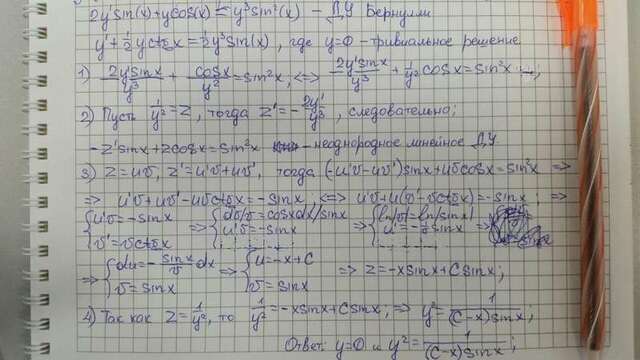 2y'sin(x)+ycos(x)=y³sin²(x) – ДУ Бернулли
y'+½yctgx=½y³sin(x), где y=0 – тривиальное решение.
1) 2y'sinx/y³ + cosx/y² = sin²x, <=> 2y'sinx/y³ + 1/y² cosx = sin²x;
2) Пусть 1/y²=z, тогда z'=-2y'/y³, следовательно;
-z'sinx+zcosx=sin²x – неоднородное линейное ДУ.
3) z=uv; z'=u'v+uv', тогда (-u'v-uv')sinx+uvcosx=sin²x =>
=> u'v+uv'-uvctgx=-sinx, <=> u'v+u(v'-vctgx)=-sinx; =>
{u'v=-sinx => {dv/v=cosxdx/sinx => {ln|v|=ln|sinx| =>
v'=vctgx u'v=-sinx u'=-1/v sinx
=> {du=-sinx/v dx => {u=-x+C => z=-xsinx+Csinx;
v=sinx v=sinx
4) Так как z=1/y², то 1/y²=-xsinx+Csinx; => y²=1/(C-x)sinx;
Ответ: y=0 и y²=1/(C-x)sinx;